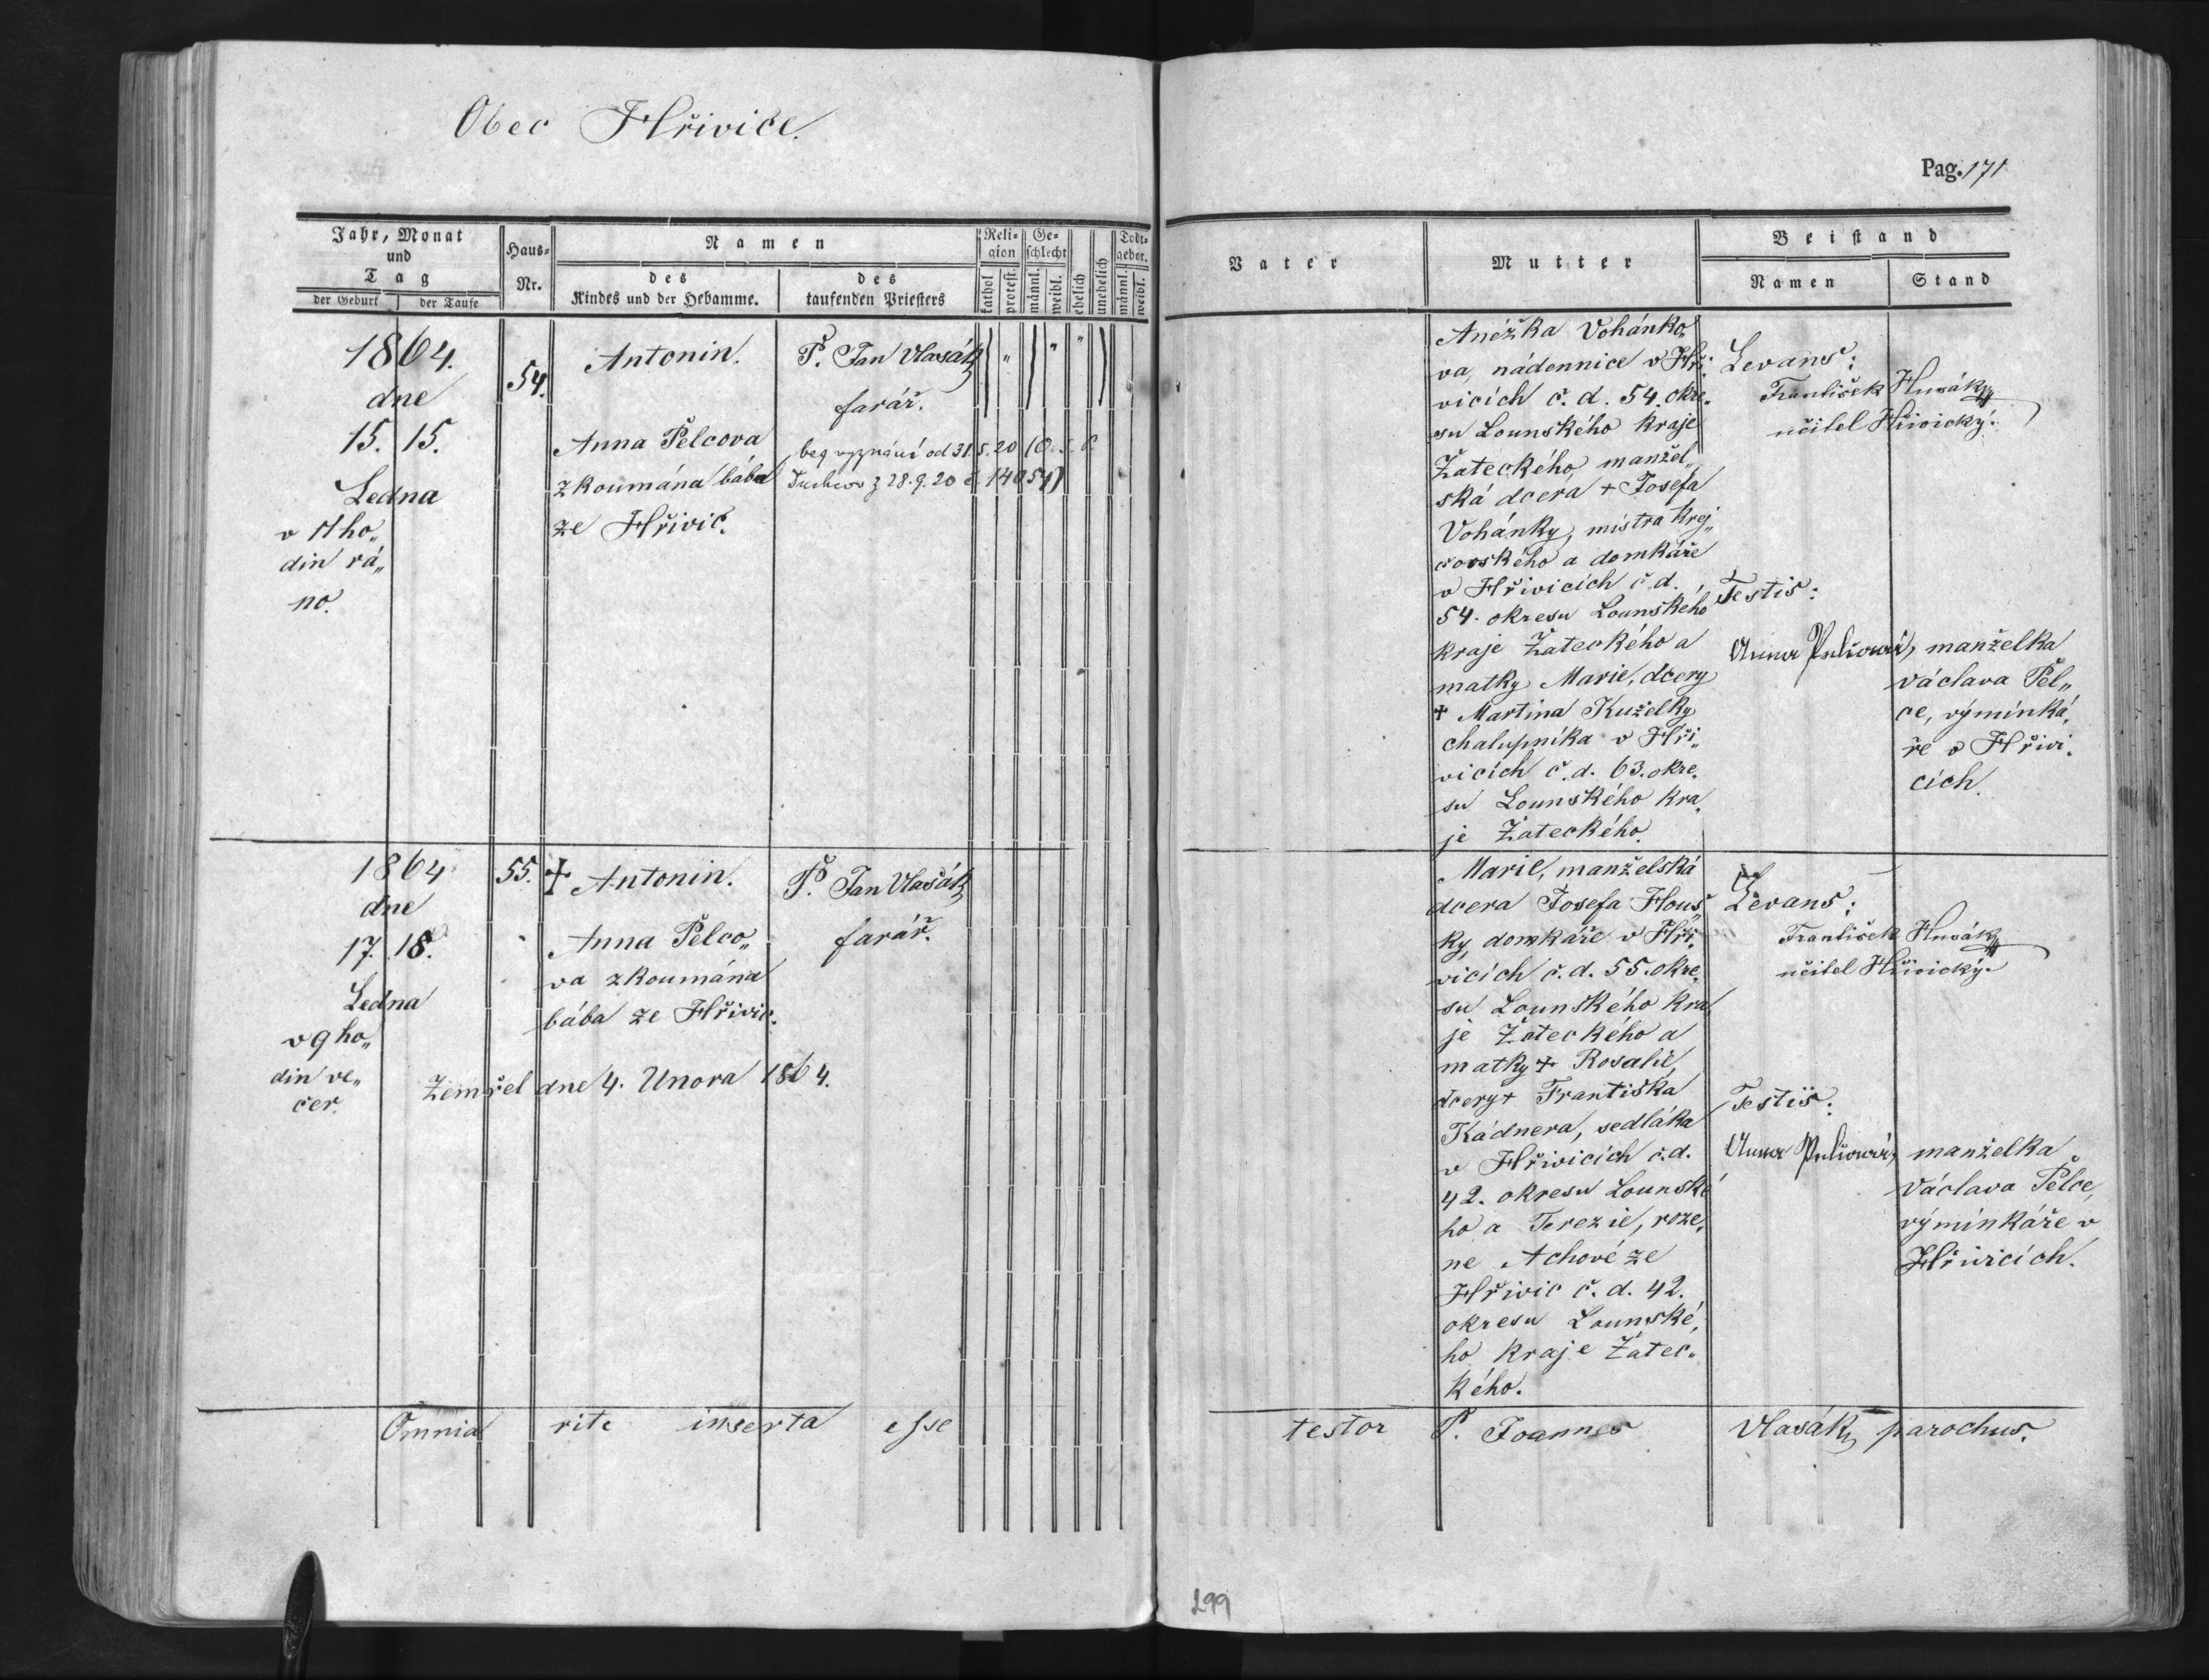 Obec Hřivice.
Pag. 171
Jahr, Monat und Tag
der Geburt
der Taufe
Haus-Nr.
Namen
des Kindes und der Hebamme.
des taufenden Priesters
Religion
kathol.
protest.
Geschlecht
männl.
weibl.
ehelich
unehelich
Todtgebor.
männl.
weibl.
Vater
Mutter
Beistand
Namen
Stand
1864.
dne
15. 15.
Ledna
v 11 ho„
din rá„
no.
54.
Antonin.
Anna Pelcova
zkoumána bába
ze Hřivic.
P. Jan Vlasák
farář.
bez vyznání od 31. 5. 20
z 28. 9. 20 č. 14054)
Anéžka Vohánko„
va, nádennice v Hři„
vicích č. d. 54. okre„
su Lounského kraje
Žateckého, manžel„
ská dcera + Josefa
Vohánky, mistra krej„
covského a domkáře
v Hřivicích č. d.
54. okresu Lounského
kraje Žateckého a
matky Marie, dcery
+ Martina Kuželky
chalupníka v Hři„
vicích č. d. 63. okre„
su Lounského kra„
je Žateckého.
Levans:
František Husák
učitel Hřivický.
Testis:
Anna Pelcová, manželka
václava Pel„
ce, výminká„
ře v Hřivi„
cích.
1864
dne
17. 18.
Ledna
v 9 ho„
din ve„
čer.
55.
+ Antonin.
Anna Pelco„
va zkoumána
bába ze Hřivic.
P. Jan Vlasák
farář.
Zemřel dne 4. Unora 1864.
Marie, manželská
dcera Josefa Hous„
ky, domkáře v Hři„
vicích č. d. 55. okre„
su Lounského kra„
je Žateckého a
matky + Rosalie,
dcery + Františka
Kádnera, sedláka
v Hřivicích č. d.
42. okresu Lounské„
ho a Terezie, roze„
ne Achové ze
Hřivic č. d. 42.
okresu Lounské„
ho kraje Žatec„
kého.
Levans:
František Husák
učitel Hřivický.
Testis:
Anna Pelcová, manželka
Václava Pelce,
výminkáře v
Hřivicích.
Omnia rite inserta esse testor P. Joannes Vlasák, parochus.
299